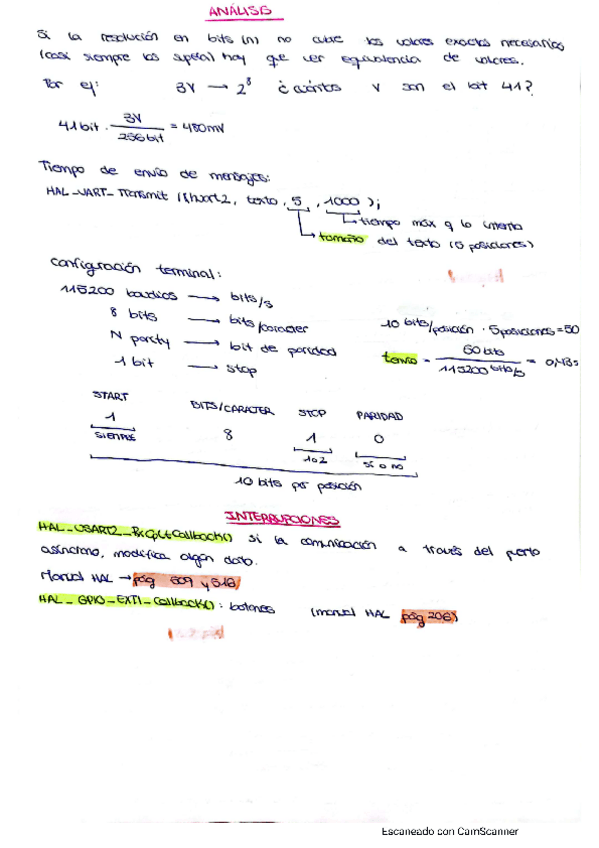 ANÁLISIS
Si la resolución en bits (n) no cubre los valores exactos necesarios
(casi siempre los supera) hay que ver equivalencia de valores.
Por ej: 3V → 2⁸ ¿cuántos V son el bit 41?
41 bit · 3V / 256 bit = 480mV
Tiempo de envío de mensajes:
HAL_UART_Transmit (&huart2, texto, 5, 1000);
tiempo máx q lo intenta
tamaño del texto (5 posiciones)
configuración terminal:
115200 baudios → bits/s
8 bits → bits/caracter
N parity → bit de paridad
1 bit → stop
10 bits/posición · 5 posiciones = 50
tenvío = 50 bits / 115200 bits/s = 0,43s
START BITS/CARATER STOP PARIDAD
1 8 1 0
SIEMPRE 1 o 2 sí o no
10 bits por posición
INTERRUPCIONES
HAL_USART2_RxCpltCallback() si la comunicación a través del puerto
asíncrono, modifica algún dato.
Manual HAL → pág 609 y 616)
HAL_GPIO_EXTI_Callback(): botones (manual HAL pág 206)
Escaneado con CamScanner